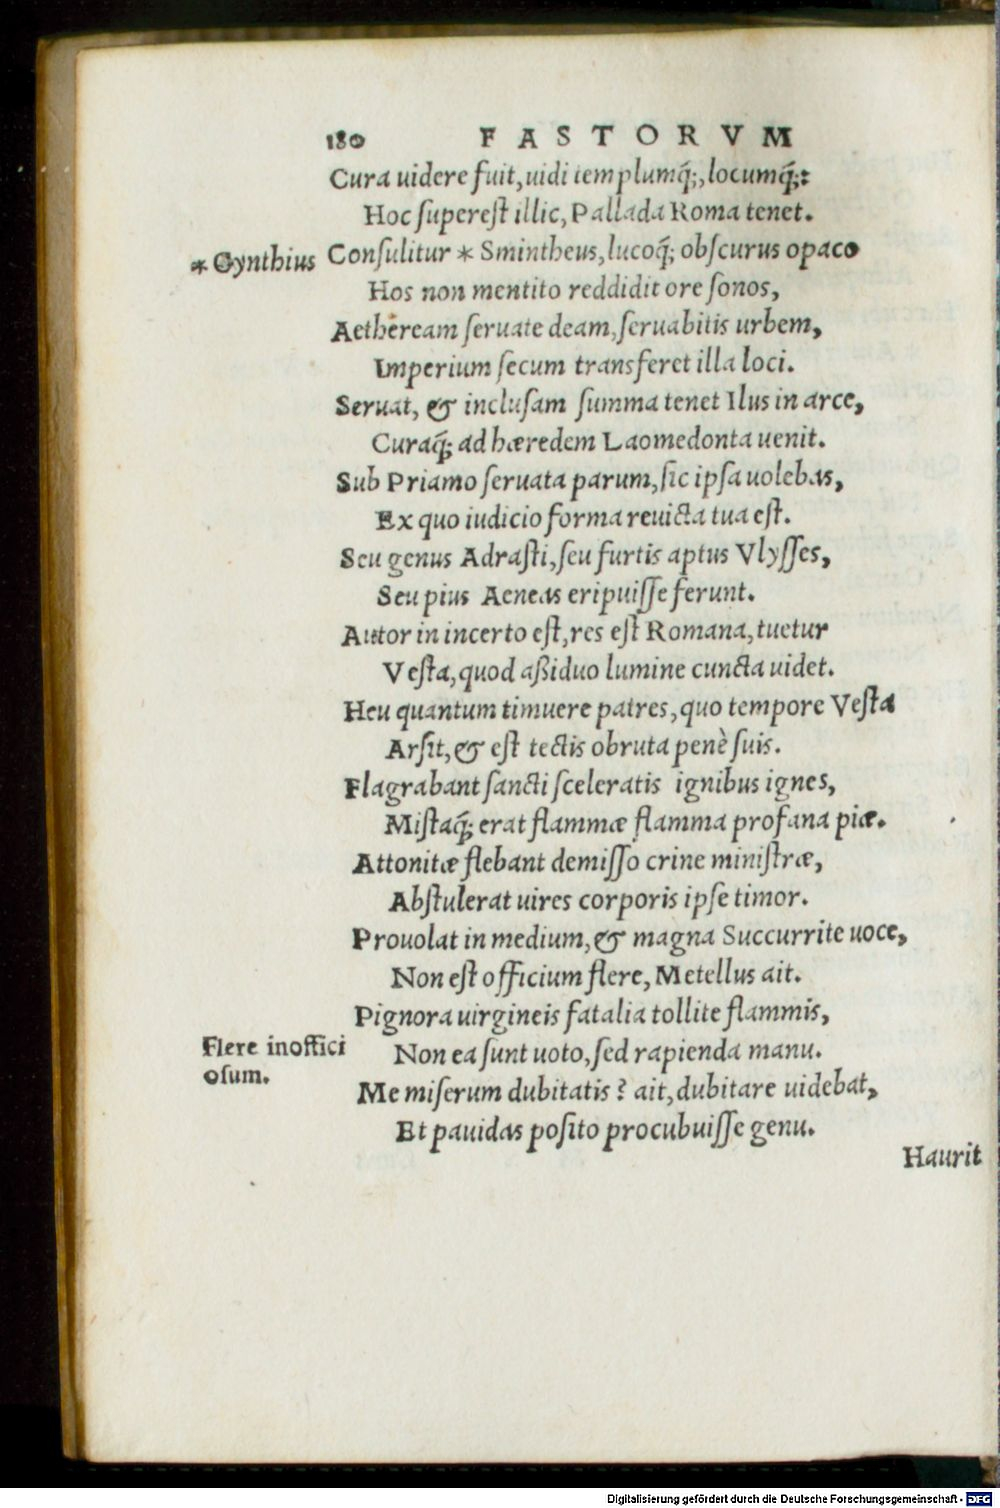 180 FASTORVM
Cura uidere fuit, uidi templumq́;, locumq́;:
Hoc superest illic, Pallada Roma tenet.
* Cynthius
Consulitur * Smintheus, lucoq́; obscurus opaco
Hos non mentito reddidit ore sonos,
Aetheream seruate deam, seruabitis urbem,
Imperium secum transferet illa loci.
Seruat, & inclusam summa tenet Ilus in arce,
Curaq́; ad hæredem Laomedonta uenit.
Sub Priamo seruata parum, sic ipsa uolebas,
Ex quo iudicio forma reuicta tua est.
Seu genus Adrasti, seu furtis aptus Vlysses,
Seu pius Aeneas eripuisse ferunt.
Autor in incerto est, res est Romana, tuetur
Vesta, quod aßiduo lumine cuncta uidet.
Heu quantum timuere patres, quo tempore Vesta
Arsit, & est tectis obruta penè suis.
Flagrabant sancti sceleratis ignibus ignes,
Mistaq́; erat flammæ flamma profana piæ.
Attonitæ flebant demisso crine ministræ,
Abstulerat uires corporis ipse timor.
Prouolat in medium, & magna Succurrite uoce,
Non est officium flere, Metellus ait.
Pignora uirgineis fatalia tollite flammis,
Flere inoffici
osum.
Non ea sunt uoto, sed rapienda manu.
Me miserum dubitatis? ait, dubitare uidebat,
Et pauidas posito procubuisse genu.
Haurit
Digitalisierung gefördert durch die Deutsche Forschungsgemeinschaft - DFG